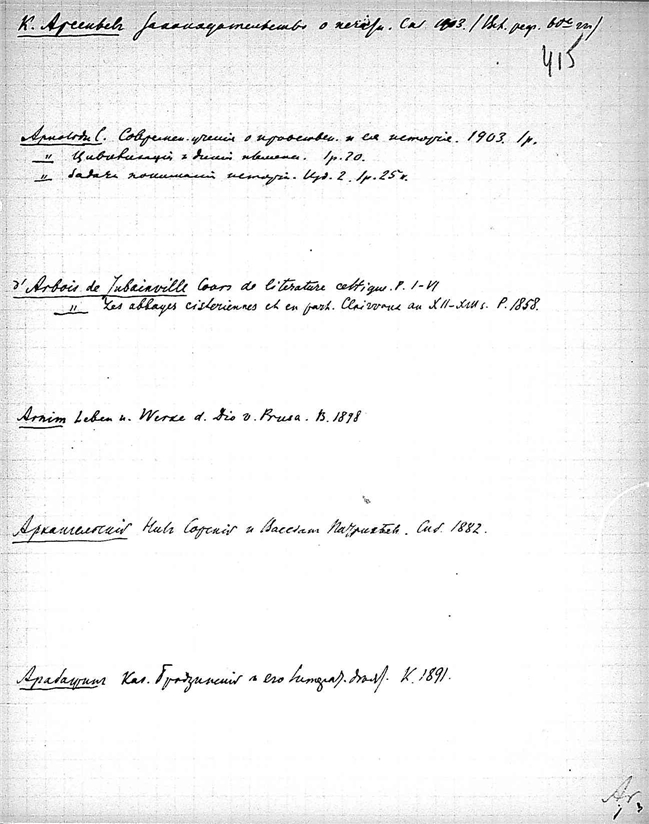 К. Арсеньевъ Законодательство о печати. Сп. 1903. /
415
Арнольди С. Современ. ученія о нравствен. и ея исторія. 1903. 1р.
" Цивилизація и дикія племена. 1р.20.
" Задачи пониманія исторіи. Изд. 2. 1р.25к.
d'Arbois de Jubainville Cours de literature celtique. P. I-VI
" Les abbayes cisteriennes et en part. Clairvaux au XII-XIII s. P. 1858.
Arnim Leben u. Werke d. Dio v. Prusa. B. 1898
Архангельскій Нилъ Сорскій и Вассіанъ Патрикѣев. Спб. 1882.
Арабажинъ Каз. Бродзинскій и его литерат. К. 1891.
Ar
3